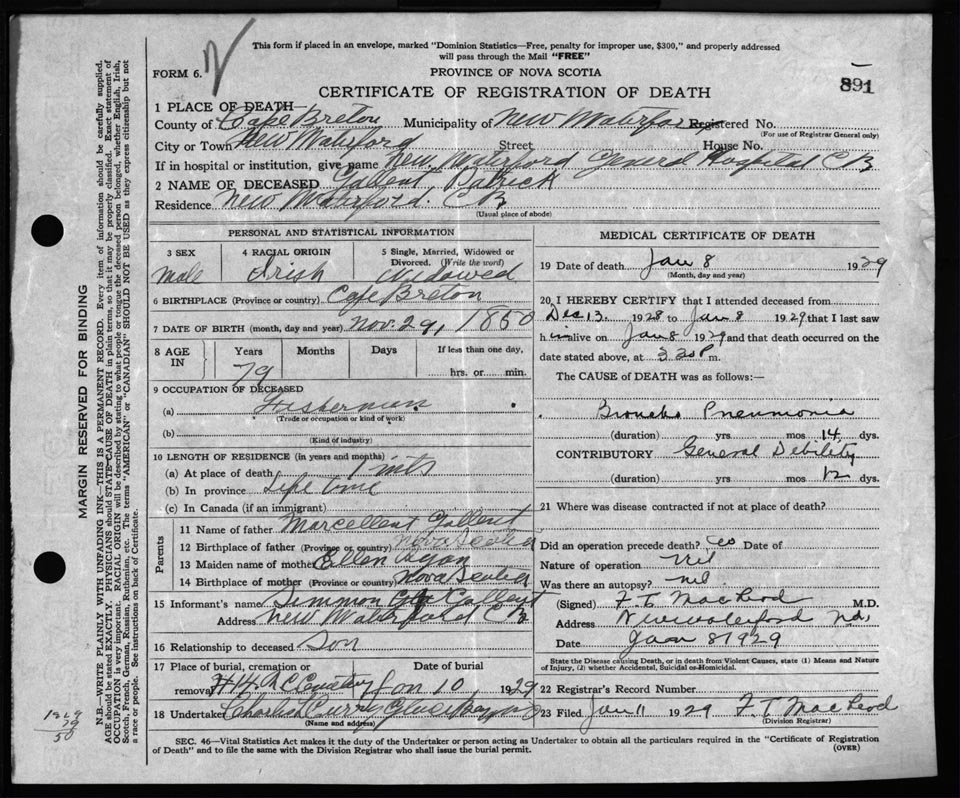 This form if placed in an envelope, marked "Dominion Statistics—Free, penalty for improper use, $300," and properly addressed
will pass through the Mail "FREE"
FORM 6.
PROVINCE OF NOVA SCOTIA
891
CERTIFICATE OF REGISTRATION OF DEATH
1 PLACE OF DEATH—
County of Cape Breton Municipality of New Waterford Registered No.
(For use of Registrar General only)
City or Town New Waterford Street House No.
If in hospital or institution, give name New Waterford General Hospital CB
2 NAME OF DECEASED Gallent, Patrick
Residence New Waterford. CB
(Usual place of abode)
PERSONAL AND STATISTICAL INFORMATION
3 SEX 4 RACIAL ORIGIN 5 Single, Married, Widowed or
Divorced. (Write the word)
Male Irish Widowed
6 BIRTHPLACE (Province or country) Cape Breton
7 DATE OF BIRTH (month, day and year) Nov. 29, 1850
8 AGE IN Years Months Days If less than one day,
79 hrs. or min.
9 OCCUPATION OF DECEASED
(a) Fisherman.
(Trade or occupation or kind of work)
(b)
(Kind of industry)
10 LENGTH OF RESIDENCE (in years and months)
(a) At place of death
(b) In province Life time
(c) In Canada (if an immigrant)
Parents
11 Name of father Marcellent Gallent
12 Birthplace of father (Province or country) Nova Scotia
13 Maiden name of mother Ellen
14 Birthplace of mother (Province or country) Nova Scotia
15 Informant's name Simmon Gallent
Address New Waterford CB
16 Relationship to deceased Son
17 Place of burial, cremation or Date of burial
removal R C Cemetery Jan 10, 1929
18 Undertaker Charles Curry Glace Bay
(Name and address)
MEDICAL CERTIFICATE OF DEATH
19 Date of death Jan 8 1929
(Month, day and year)
20. I HEREBY CERTIFY that I attended deceased from
Dec 13. 1928 to Jan 8 1929 that I last saw
him alive on Jan 8 1929 and that death occurred on the
date stated above, at 3 30 P. m.
The CAUSE of DEATH was as follows:
Broncho Pneumonia
(duration) yrs mos 14 dys.
CONTRIBUTORY General Debility
(duration) yrs mos 12 dys.
21 Where was disease contracted if not at place of death?
Did an operation precede death? Date of
Nature of operation Nil
Was there an autopsy? nil
(Signed) F. T. MacLeod M.D.
Address New Waterford
Date Jan 8 1929
State the Disease causing Death, or in death from Violent Causes, state (1) Means and Nature
of Injury, (2) whether Accidental, Suicidal or Homicidal.
22 Registrar's Record Number
23 Filed Jan 11 1929 F. T. MacLeod
(Division Registrar)
SEC. 46—Vital Statistics Act makes it the duty of the Undertaker or person acting as Undertaker to obtain all the particulars required in the "Certificate of Registration
of Death" and to file the same with the Division Registrar who shall issue the burial permit.
(OVER)
MARGIN RESERVED FOR BINDING
N.B.—WRITE PLAINLY WITH UNFADING INK—THIS IS A PERMANENT RECORD. Every item of information should be carefully supplied.
AGE should be stated EXACTLY. PHYSICIANS should STATE CAUSE OF DEATH in plain terms, so that it may be properly classified. Exact statement of
OCCUPATION is very important. RACIAL ORIGIN will be described by stating to what people or tongue the deceased person belonged, whether English, Irish,
Scotch, French, German, Russian, Ruthenian, etc. The terms "AMERICAN" or "CANADIAN" SHOULD NOT BE USED as they express citizenship but not
a race or people. See instructions on back of Certificate.